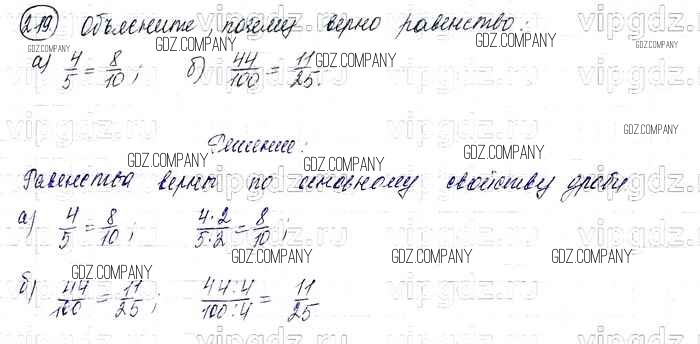 219) Объясните, почему верно равенство:
а) 4/5 = 8/10; б) 44/100 = 11/25.
Решение:
Равенства верны по основному свойству дроби
а) 4/5 = 8/10; 4·2/5·2 = 8/10;
б) 44/100 = 11/25; 44:4/100:4 = 11/25
GDZ.COMPANY
vipgdz.ru